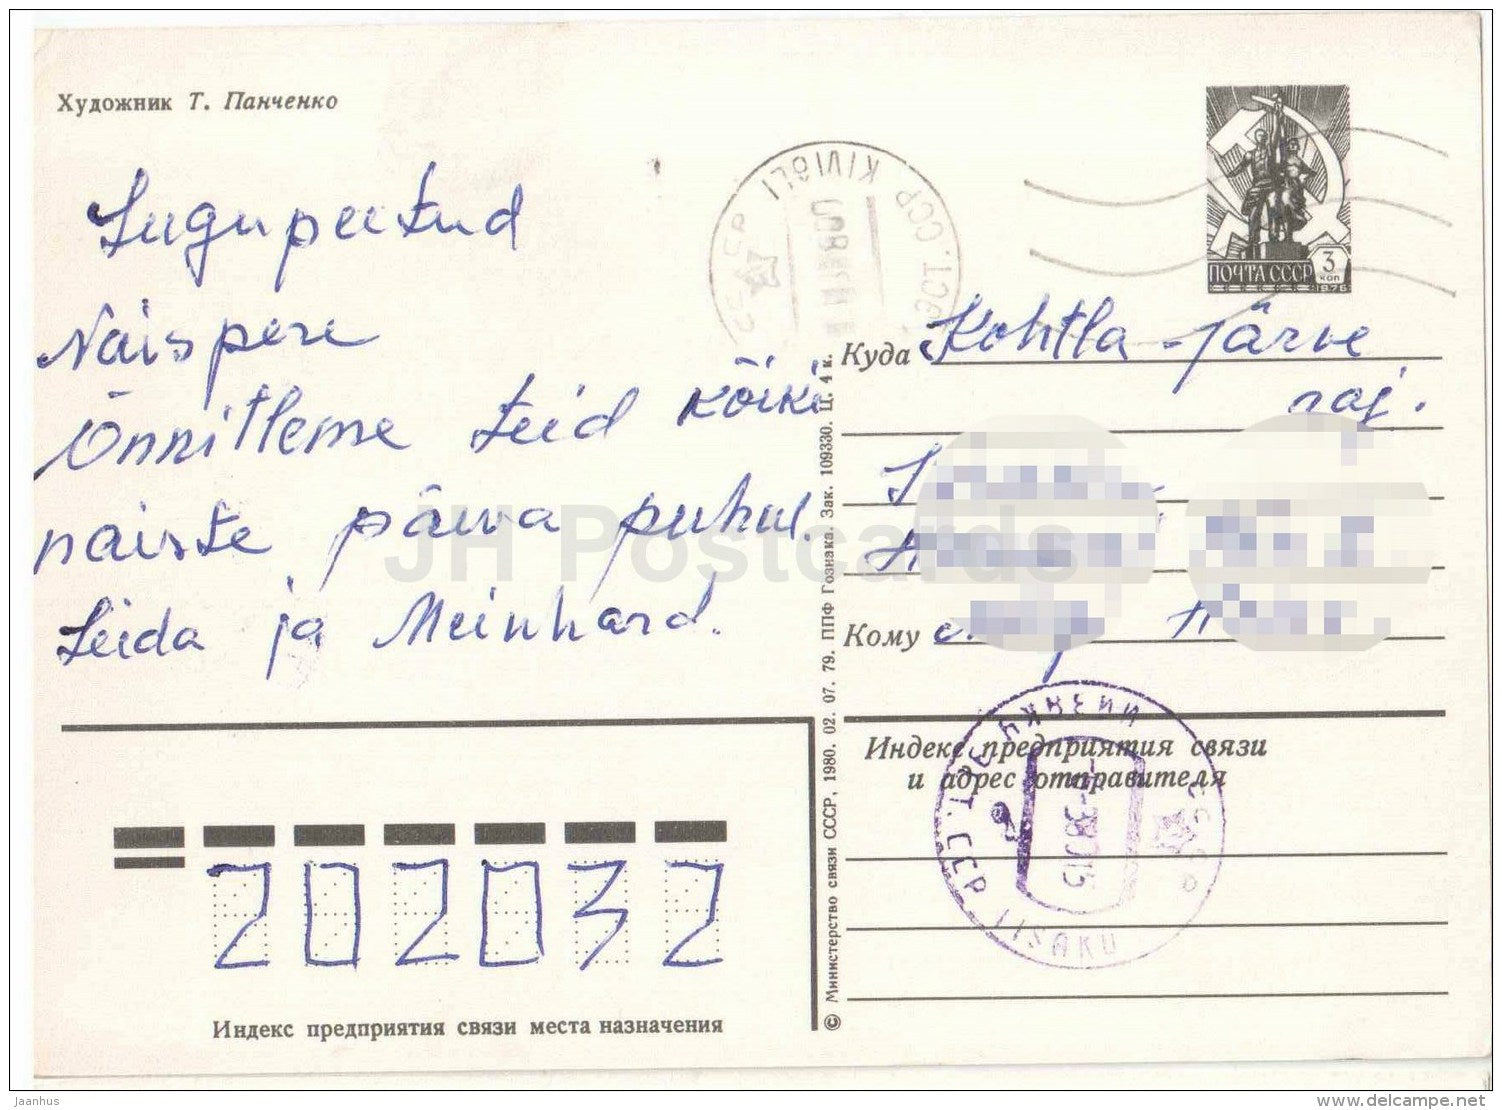 Художник Т. Панченко
Lugupeetud
Naispere
Õnnitleme teid kõiki
naiste päeva puhul.
Leida ja Meinhard.
ПОЧТА СССР 3 коп
1976
KIVIÕLI
ЭСТ. ССР
СССР
Куда Kohtla-Järve
raj.
Кому
© Министерство связи СССР, 1980. 02. 07. 79. ППФ Гознака. Зак. 109330. Ц. 4 к.
Индекс предприятия связи
и адрес отправителя
СССР
IISAKU
202032
Индекс предприятия связи места назначения
JH Postcards
Jaanhus
delcampe.net